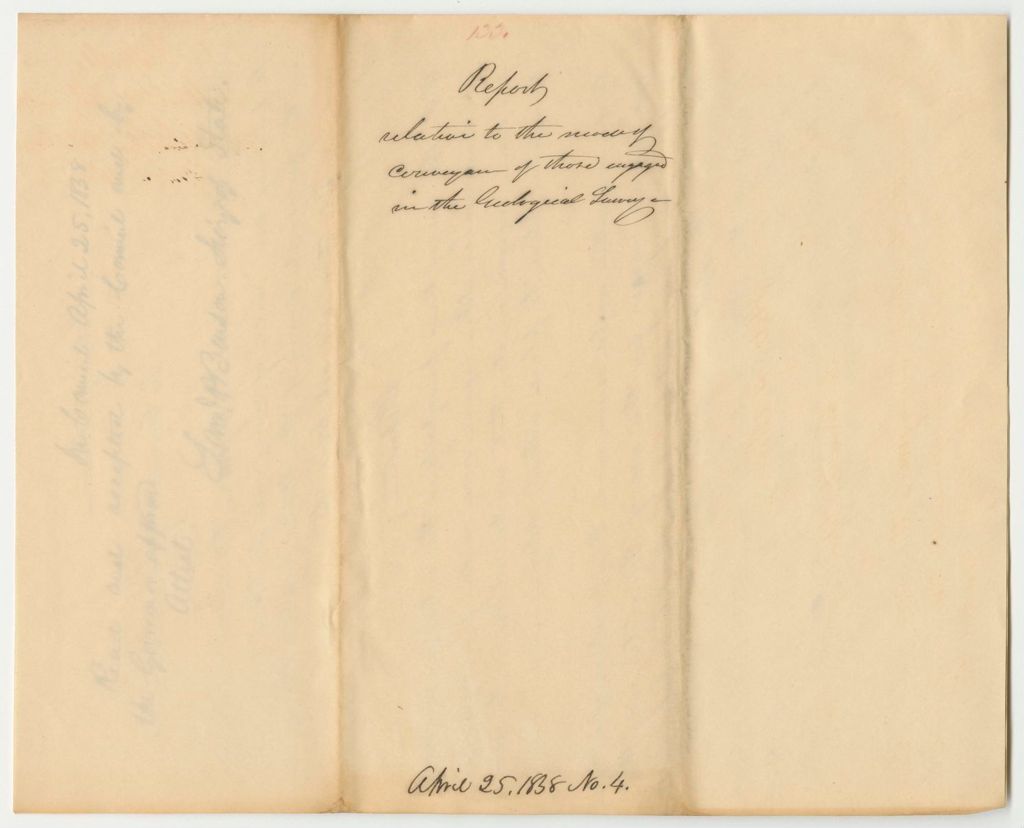 133.
Report
relative to the mode of
conveyance of those engaged
in the Geological Survey
April 25. 1838 No. 4.
In Council April 25, 1838
Read and accepted by the Council and by
the Governor approved
Attest:
Secy of State.